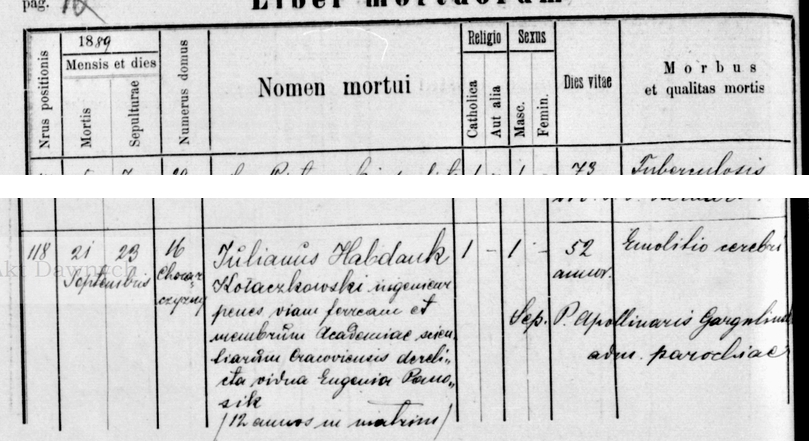 pag.
Liber mortuorum
Nrus positionis
1889
Mensis et dies
Mortis
Sepulturae
Numerus domus
Nomen mortui
Religio
Catholica
Aut alia
Sexus
Masc.
Femin.
Dies vitae
Morbus
et qualitas mortis
1 - 1 - 73 Tuberculosis
118 21 23 16 Julianus Habdank 1 - 1 - 52 Emolitio cerebri
Septembris Chorąż„ Kołaczkowski ingenieur annor.
czyzny penes viam ferream et Sep. P. Apollinaris
membrum Academiae scien„ adm. parochiae
tiarum Cracoviensis dereli„
cta vidua Eugenia Pano„
sik
/12 annos in matrim/